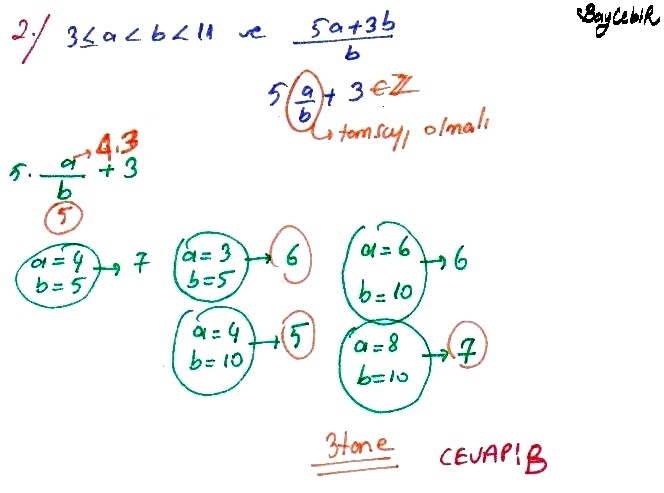 BayCebiR
2./ 3≤a<b<11 ve (5a+3b)/b
5 a/b + 3 ∈ Z
↳ tamsayı olmalı
4.3
5. a/b + 3
5
a=4 b=5 → 7
a=3 b=5 → 6
a=6 b=10 → 6
a=4 b=10 → 5
a=8 b=10 → 7
3 tane
CEVAP! B